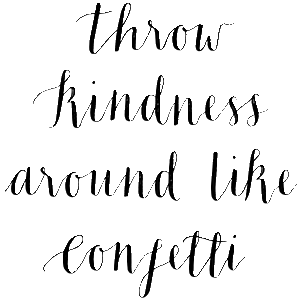 throw
kindness
around like
confetti